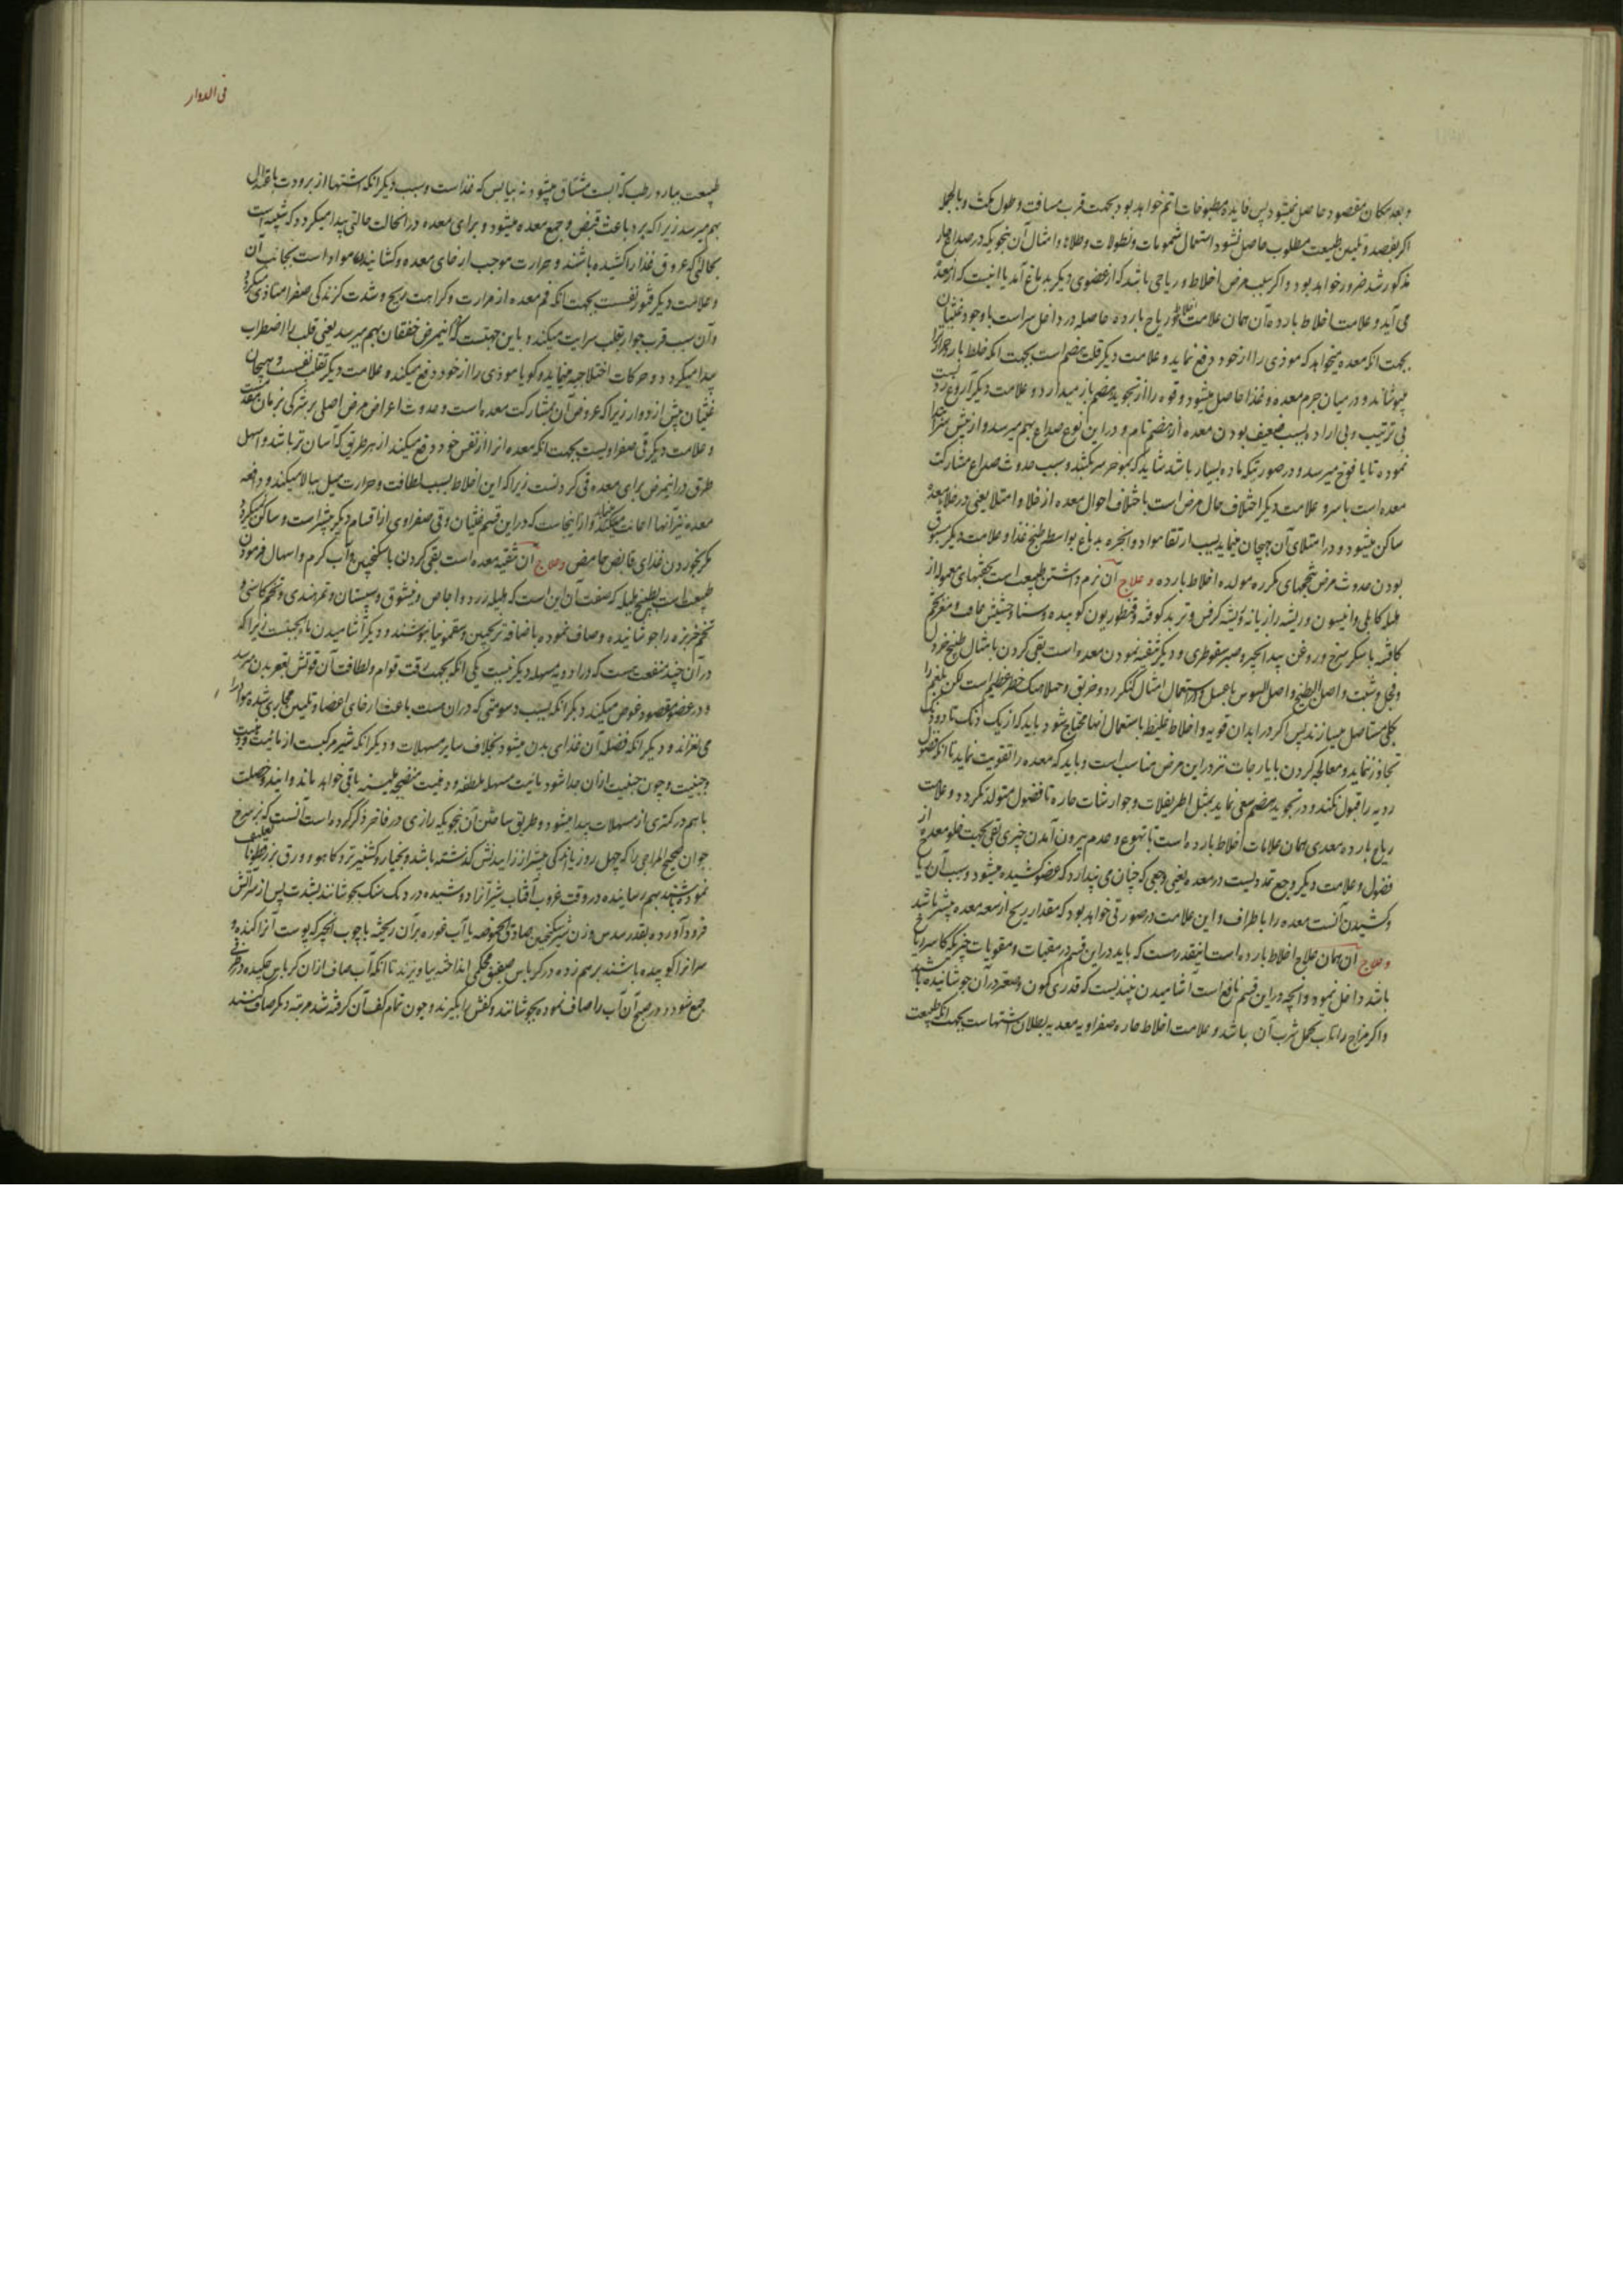 و بعد مکان مقصود حاصل نمیشود پس فایده مطبوخات اتم خواهد بود بجهت قرب مسافت و طول مکث و بالجمله
اکر بفصد و تلیین طبیعت مطلوب حاصل نشود استعمال شمومات و نطولات و طلاها و امثال آن بنحویکه در صداع حار
مذکور شد ضرور خواهد بود و اکر سبب مرض اخلاط و ریاحی باشد که از عضوی دیکر بدماغ آید یا اینست که از معده
می آید و علامت اخلاط بارده آن همان علامت اخلاط و ریاح بارده حاصله در داخل سر است با وجود غثیان
بجهت انکه معده میخواهد که موذی را از خود دفع نماید و علامت دیکر قلت هضم است بجهت انکه خلط بارد حرارت
میپوشاند و در میان جرم معده و غذا حاصل میشود و قوه را از تجوید هضم باز میدارد و علامت دیکر آروغ
بی ترتیب و بی اراده بسبب ضعیف بودن معده از هضم تام و در این نوع صداع بهم میرسد و از پیش سر
نموده تا یافوخ میرسد و در صورتیکه ماده بسیار باشد شاید که بموخر سر بکشد و سبب حدوث صداع مشارکت
معده است با سر و علامت دیکر اختلاف حال مرض است باختلاف احوال معده از خلا و امتلا یعنی در خلاء معده
ساکن میشود و در امتلای آن هیجان مینماید بسبب ارتقا مواد و ابخره بدماغ بواسطه طبخ غذا و علامت دیکر مسبوق
بودن حدوث مرض بتخمهای مکرره مولده اخلاط بارده و علاج آن نرم داشتن طبیعت است بحقنهای معموله از
هلیله کابلی و انیسون و ریشه رازیانه و ریشه کرفس و تربد کوفته و قنطوریون کوبیده و سنا و حشیش غافث و مغز تخم
کافشه با شکر سرخ و روغن بید انجیر و صبر سقوطری و دیکر تنقیه نمودن معده است بقی کردن بامثال طبیخ خردل
و فجل و شبت و اصل البطیخ و اصل السوس با عسل و در استعمال امثال کنکرزد و خربق و خطر عظیم است لکن بلغم را
بکلی مستاصل میسازند پس اکر در ابدان قویه و اخلاط غلیظ باستعمال انها محتاج شود باید که از یک دنک تا دو دنک
تجاوز ننماید و معالجه کردن بایارجات نیز در این مرض مناسب است و باید که معده را تقویت نماید تا انکه فضول
ردیه را قبول نکند و در تجوید هضم سعی نماید بمثل اطریفلات و جوارشات حاره تا فضول متولد نکردد و علامت
ریاح بارده معدی همان علامات اخلاط بارده است با تهوع و عدم بیرون آمدن چیزی بقی بجهت خلو معده از
فضول و علامت دیکر وجع تمددیست در معده یعنی وجعی که چنان می پندارد که عضو کشیده میشود و سبب آن
و کشیدن آنست معده را باطراف و این علامت در صورتی خواهد بود که مقدار ریح از سعه معده بیشتر باشد
و علاج آن همان علاج اخلاط بارده است اینقدر هست که باید در این قسم در مقیات و مقویات چیزیکه کاسر ریاح
باشد داخل نمود و انچه در این قسم نافع است اشامیدن نبیذیست که قدری کمون و صعتر در آن جوشانیده باشند
و اکر مزاج را تاب تحمل شرب آن باشد و علامت اخلاط حاره صفراویه معدیه بطلان اشتهاست بجهت انکه طبیعت
فی الدوار
طبیعت ببارد رطب که آبست مشتاق میشود نه بیابس که غذاست و سبب دیکر انکه اشتها از برودت باعتدال
بهم میرسد زیرا که برد باعث قبض و جمع معده میشود و برای معده در انحالت حالتی پیدا میکردد که شبیه است
بحالتی که عروق غذا را کشیده باشند و حرارت موجب ارخای معده و کشاینده مواد است بجانب آن
و علامت دیکر فتور نفسست بجهت انکه فم معده از حرارت و کراهت ریح و شدت کزندکی صفرا متاذی میکردد
و آن بسبب قرب جوار بقلب سرایت میکند و باین جهتست که در اینمرض خفقان بهم میرسد یعنی قلب را اضطراب
پیدا میکردد و حرکات اختلاجیه مینماید و کویا موذی را از خود دفع میکند و علامت دیکر تقلب نفس است و هیجان
غثیان پیش از دوار زیرا که عروض آن بمشارکت معده است و حدوث اعراض مرض اصلی بر شرکی بزمان مقدمست
و علامت دیکر قی صفراویست بجهت انکه معده انرا از نفس خود دفع میکند از هر طریق که آسان تر باشد و اسهل
طرق در اینمرض برای معده قی کردنست زیرا که این اخلاط بسبب لطافت و حرارت میل ببالا میکند و دافعه
معده نیز آنها را اعانت میکند و از اینجاست که در این قسم غثیان و قی صفراوی از اقسام دیکر بیشتر است و ساکن نمیکردد
مکر بخوردن غذای قابض حامض و علاج آن تنقیه معده است بقی کردن با سکنجبین و آب کرم و اسهال فرمودن
طبیعت است بطبیخ هلیله که صفت آن این است که هلیله زرد و اجاص و فیشوق و سپستان و تمرهندی و تخم کاسنی و
تخم خربزه را جوشانیده و صاف نموده با اضافه ترنجبین و سقمونیا بنوشند و دیکر اشامیدن ماءالجبنست زیرا که
در آن چند منفعت هست که در ادویه مسهله دیکر نیست یکی انکه بجهت رقت قوام و لطافت آن قوتش بقعر بدن میرسد
و در عضو مقصود غوص میکند دیکر انکه بسبب دسومتی که در ان هست باعث ارخای اعضا و تلیین مجاری شده مواد را
می لغزاند و دیکر انکه فضله آن غذای بدن میشود بخلاف سایر مسهلات و دیکر انکه شیر مرکبست از مائیت و دهنیت
و جبنیت و چون جبنیت از ان جدا شود مائیت مسهله ملطفه و دهنیت منضجه ملینه باقی خواهد ماند و ایندو خصلت
باهم در کمتری از مسهلات پیدا میشود و طریق ساختن آن بنحویکه رازی در فاخر ذکر کرده است آنست که بز سرخ
جوان صحیح المزاجی را که چهل روز یا اندکی بیشتر از زاییدنش کذشته باشد و بخیار و کشنیز تر و کاهو و ورق بزرقطونا تعلیف
نموده باشند بهم رسانیده در وقت غروب آفتاب شیر آنرا دوشیده در دیک سنک بجوشانند بشدت پس از سر آتش
فرود آورده بقدر سدس وزن شیر سکنجبین صادق الحموضه یا آب غوره بر آن ریخته با چوب انجیر که پوست آنرا کنده و
سر انرا کوبیده باشند بر هم زده در کرباس صفیق محکمی انداخته بیاویزند تا انکه آب صاف از ان کرباس چکیده در ظرفی
جمع شود و در صبح آن آب را صاف نموده بجوشانند و کفش را بکیرند و چون تمام کف آن کرفته شد مرتبه دیکر صاف کنند